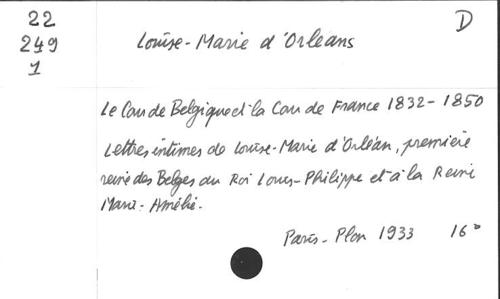 22
249
1
D
Louise-Marie d'Orléans
Le Cour de Belgique et la Cour de France 1832-1850
Lettres intimes de Louise-Marie d'Orléan, première
reine des Belges au Roi Louis-Philippe et à la Reine
Marie-Amélie.
Paris-Plon 1933 16°